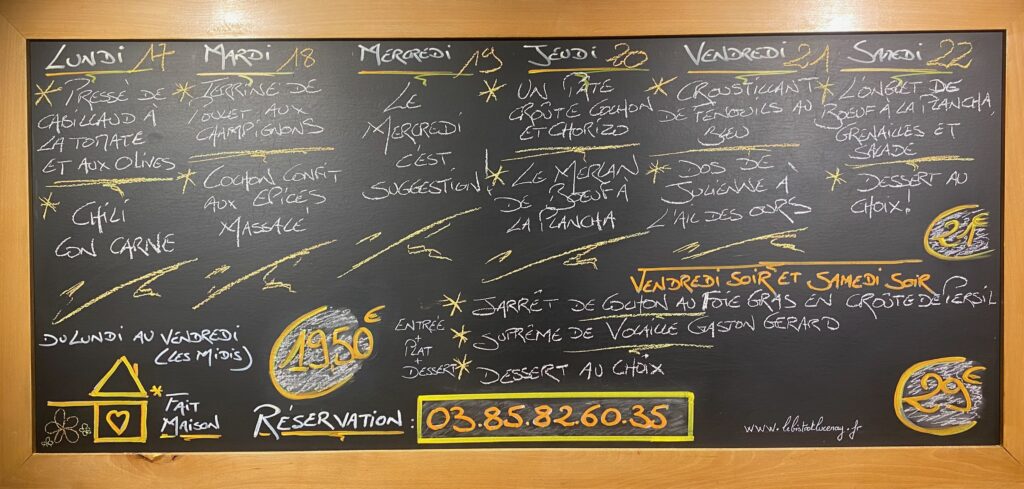 LUNDI 17
PRESSE DE
CABILLAUD A
LA TOMATE
ET AUX OLIVES
CHILI
CON CARNE
MARDI 18
TERRINE DE
POULET AUX
CHAMPIGNONS
COCHON CONFIT
AUX EPICES
MASSALÉ
MERCREDI 19
LE
MERCREDI
C'EST
SUGGESTION!
JEUDI 20
UN PÂTÉ
CROÛTE COCHON
ET CHORIZO
LE MERLAN
DE BOEUF À
LA PLANCHA
VENDREDI 21
CROUSTILLANT
DE FENOUILS AU
BLEU
DOS DE
JULIENNE À
L'AIL DES OURS
SAMEDI 22
L'ONGLET DE
BOEUF À LA PLANCHA,
GRENAILLES ET
SALADE
DESSERT AU
CHOIX!
21€
VENDREDI SOIR ET SAMEDI SOIR
ENTRÉE
+
PLAT
+
DESSERT
JARRET DE COCHON AU FOIE GRAS EN CROÛTE DE PERSIL
SUPRÊME DE VOLAILLE GASTON GERARD
DESSERT AU CHOIX
29€
DU LUNDI AU VENDREDI
(LES MIDIS)
1950€
FAIT
MAISON
RÉSERVATION : 03.85.82.60.35
www.lebistrotlucenay.fr